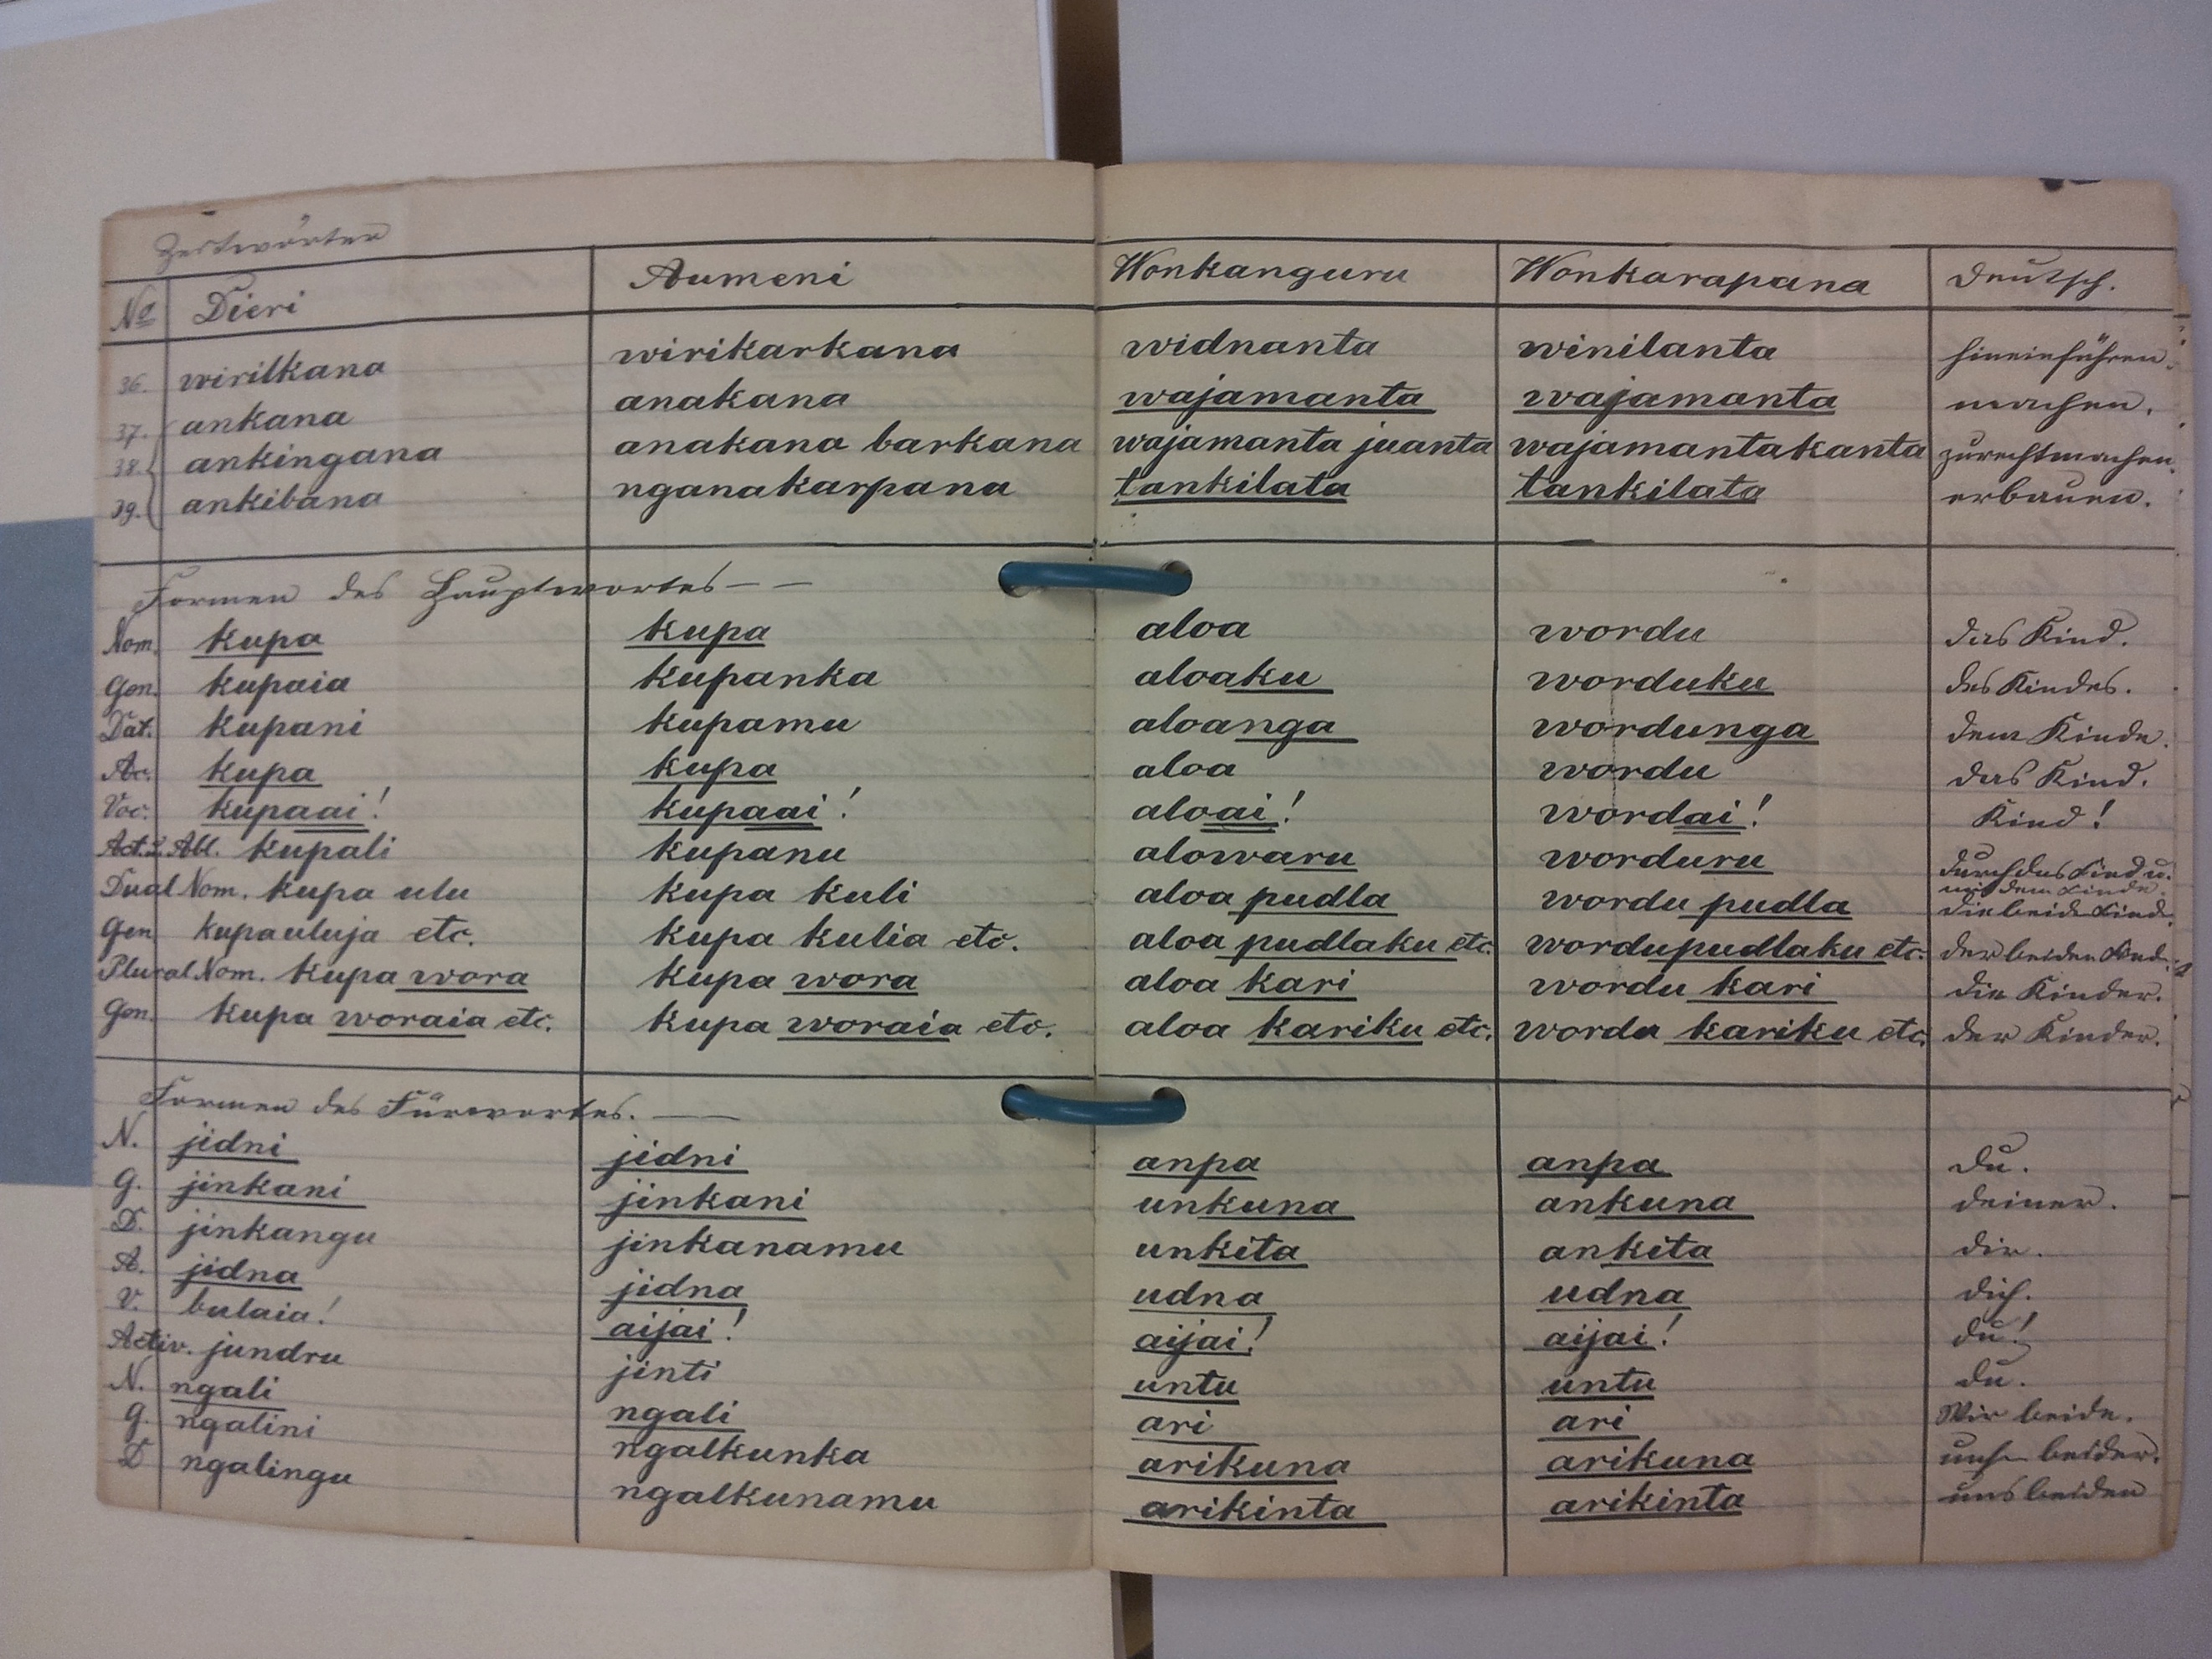 Zeitwörter
No Dieri Aumeni Wonkanguru Wonkarapana Deutsch.
36. wirilkana wirikarkana widnanta winilanta hineinführen.
37. ankana anakana wajamanta wajamanta machen.
38. ankingana anakana barkana wajamanta juanta wajamantakanta zurechtmachen.
39. ankibana nganakarpana tankilata tankilata erbauen.
Formen des Hauptwortes — —
Nom. kupa kupa aloa wordu das Kind.
Gen. kupaia kupanka aloaku worduku des Kindes.
Dat. kupani kupamu aloanga wordunga dem Kinde.
Ac. kupa kupa aloa wordu das Kind.
Voc. kupaai! kupaai! aloai! wordai! Kind!
Act. u. Abl. kupali kupanu alowaru worduru durch das Kind u. mit dem Kinde.
Dual Nom. kupa ulu kupa kuli aloa pudla wordu pudla die beide Kind.
Gen kupauluja etc. kupa kulia etc. aloa pudlaku etc. wordupudlaku etc. der beiden Kind.
Plural Nom. kupa wora kupa wora aloa kari wordu kari die Kinder.
Gen. kupa woraia etc. kupa woraia etc. aloa kariku etc. wordu kariku etc. der Kinder.
Formen des Fürwortes. —
N. jidni jidni anpa anpa du.
G. jinkani jinkani unkuna ankuna deiner.
D. jinkangu jinkanamu unkita ankita dir.
A. jidna jidna udna udna dich.
V. bulaia! aijai! aijai! aijai! du!
Activ. jundru jinti untu untu du.
N. ngali ngali ari ari Wir beide.
G. ngalini ngalkunka arikuna arikuna beider.
D ngalingu ngalkunamu arikinta arikinta uns beiden